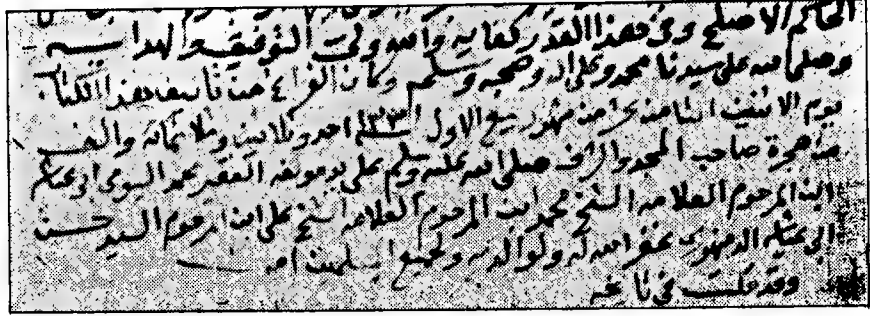 الحاكم الاصلح وفي هذا القدر كفايه والله ولي التوفيق والهدايه
وصلى الله على سيدنا محمد وعلى اله وصحبه وسلم وكان الفراغ من تاليف هذا الكتاب
يوم الاثنين الثامن عشر من شهر ربيع الاول ١٣٣١ احد وثلاثين وثلاثمائة والف
من هجرة صاحب المجد والشرف صلى الله عليه وسلم على يد مولفه الفقير محمد البيومي ابي عياشه
ابن المرحوم العلامه الشيخ محمد ابن المرحوم العلامه الشيخ علي ابن المرحوم السيد حسن
ابي عياشه الدمنهوري غفر الله له ولوالديه ولجميع المسلمين امين
وقد مكثت في تاليفه